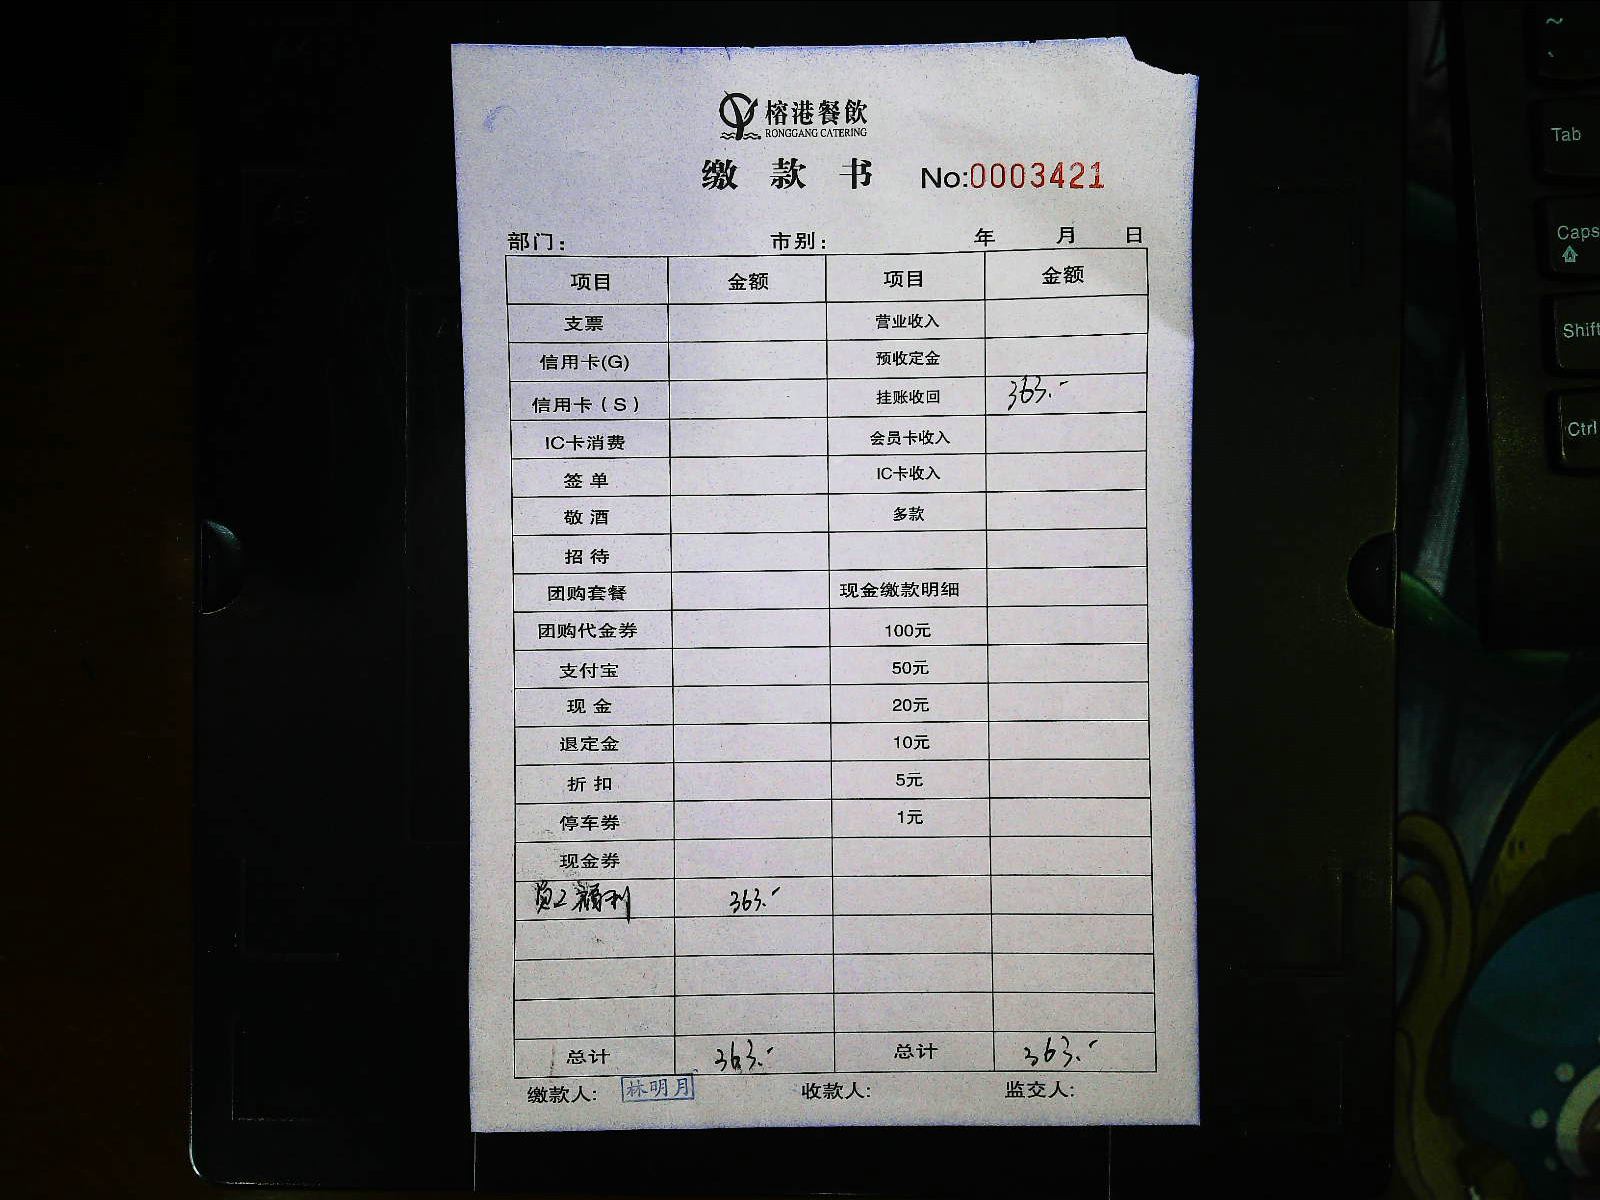 榕港餐飲
RONGGANG CATERING
缴款书 No:0003421
部门： 市别： 年 月 日
项目 金额 项目 金额
支票 营业收入
信用卡(G) 预收定金
信用卡（S） 挂账收回 363.-
IC卡消费 会员卡收入
签单 IC卡收入
敬酒 多款
招待
团购套餐 现金缴款明细
团购代金券 100元
支付宝 50元
现金 20元
退定金 10元
折扣 5元
停车券 1元
现金券
员工福利 363.-
总计 363.- 总计 363.-
缴款人: 林明月 收款人: 监交人:
~
、
Tab
Caps
Shift
Ctrl